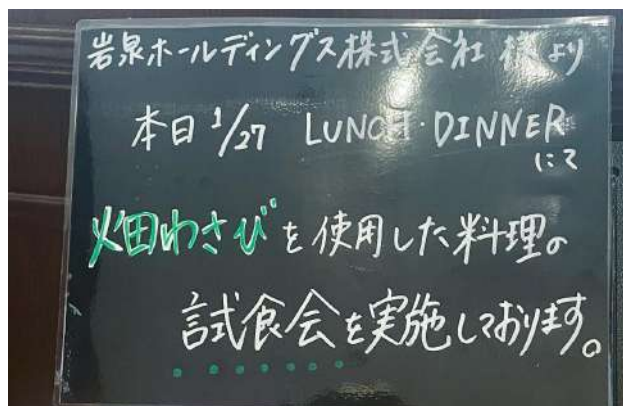 岩泉ホールディングス株式会社 様より
本日 1/27 LUNCH・DINNER
にて
畑わさびを使用した料理の
試食会を実施しております。